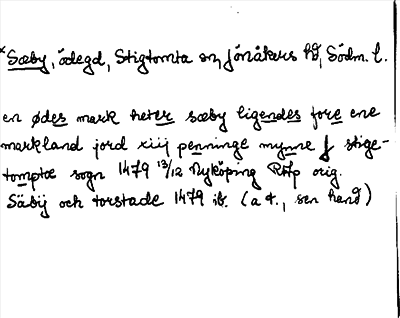 *Sæby, ödegd, Stigtomta sn, Jönåkers hd, Södm. l.
en ødes mark heter sæby ligendes fore ene
markland jord xiij penninge mynne j stige-
tomptæ sogn 1479 13/12 Nyköping RAp orig.
Säbij och torstade 1479 ib. (a t., sen hand)